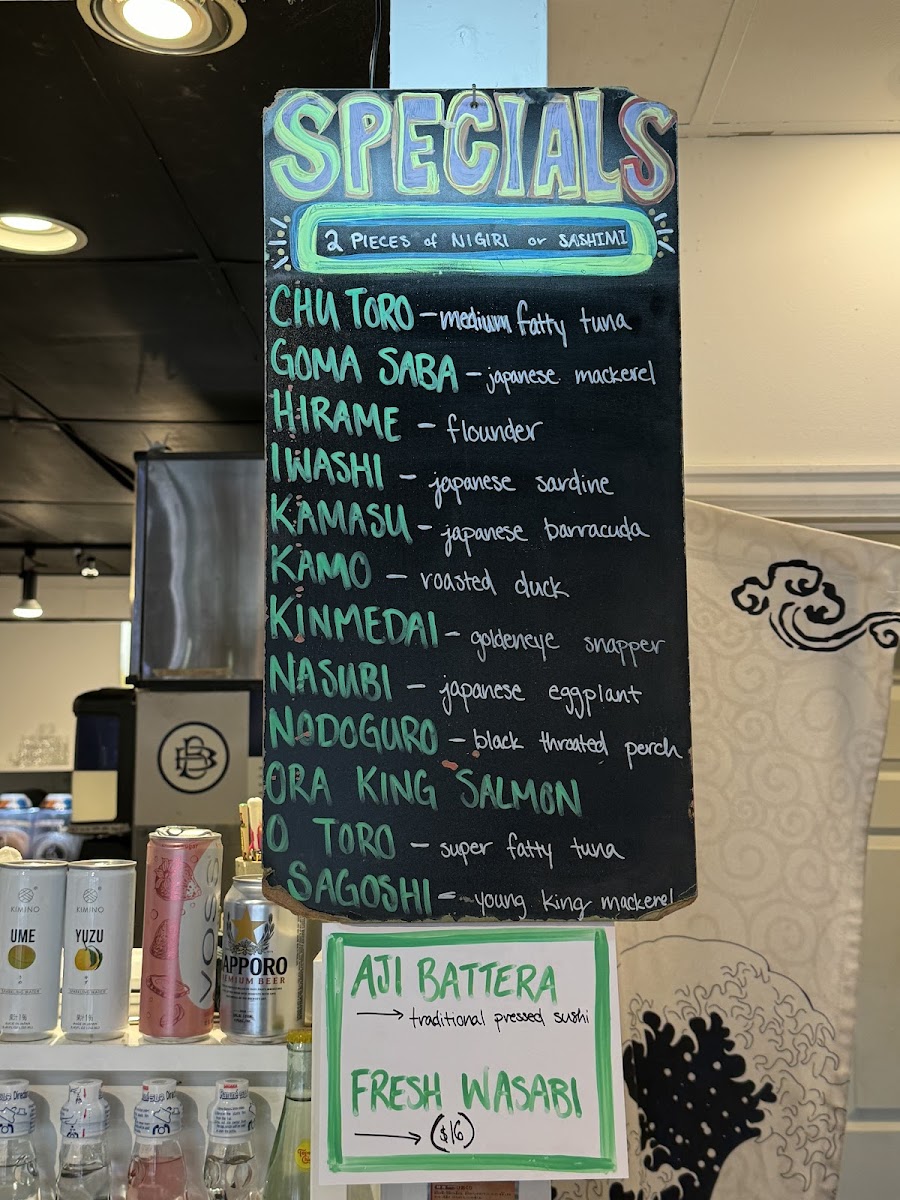 SPECIALS
2 PIECES of NIGIRI or SASHIMI
CHU TORO - medium fatty tuna
GOMA SABA - japanese mackerel
HIRAME - flounder
IWASHI - japanese sardine
KAMASU - japanese barracuda
KAMO - roasted duck
KINMEDAI - goldeneye snapper
NASUBI - japanese eggplant
NODOGURO - black throated perch
ORA KING SALMON
O TORO - super fatty tuna
SAGOSHI - young king mackerel
AJI BATTERA
→ traditional pressed sushi
FRESH WASABI
→ ($16)
KIMINO
UME
SPARKLING WATER
KIMINO
YUZU
SPARKLING WATER
VOSS
SAPPORO
PREMIUM BEER